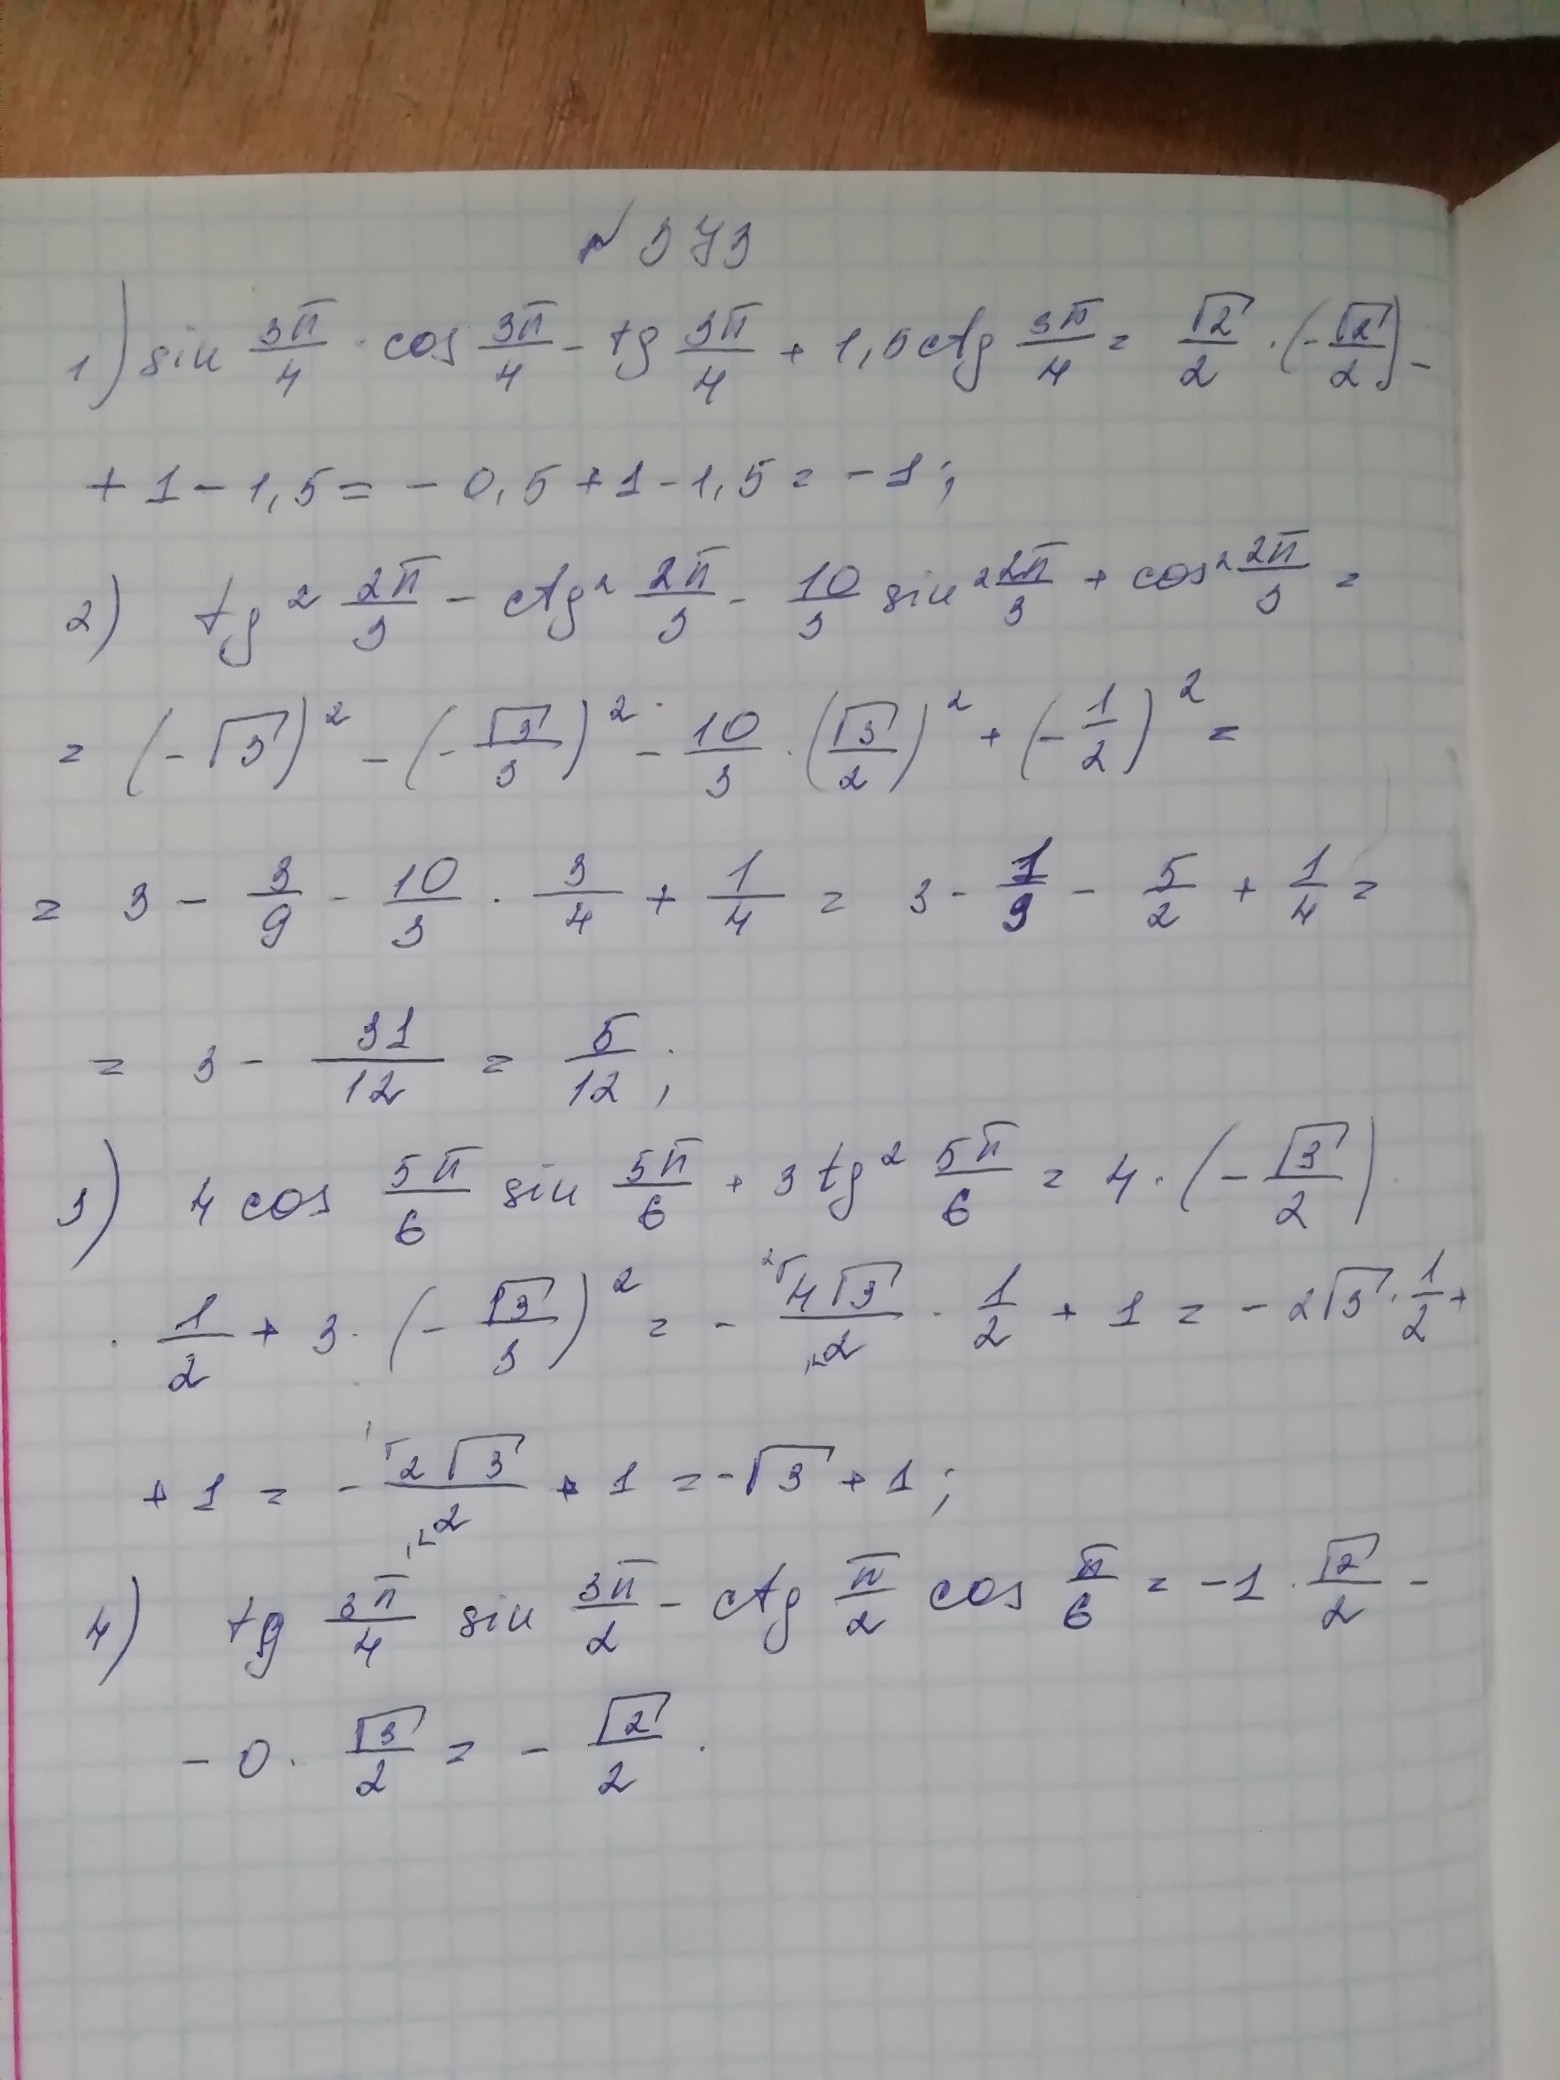 № 373
1) sin 3π/4 · cos 3π/4 - tg 3π/4 + 1,5 ctg 3π/4 = √2/2 · (-√2/2) -
+ 1 - 1,5 = - 0,5 + 1 - 1,5 = - 1;
2) tg² 2π/3 - ctg² 2π/3 - 10/3 sin² 2π/3 + cos² 2π/3 =
= (-√3)² - (-√3/3)² - 10/3 · (√3/2)² + (-1/2)² =
= 3 - 3/9 - 10/3 · 3/4 + 1/4 = 3 - 1/3 - 5/2 + 1/4 =
= 3 - 31/12 = 5/12;
3) 4 cos 5π/6 sin 5π/6 + 3 tg² 5π/6 = 4 · (-√3/2) ·
· 1/2 + 3 · (-√3/3)² = - 4√3/2 · 1/2 + 1 = - 2√3 · 1/2 +
+ 1 = - 2√3/2 + 1 = -√3 + 1;
4) tg 3π/4 sin 3π/2 - ctg π/2 cos π/6 = -1 · √2/2 -
- 0 · √3/2 = - √2/2.